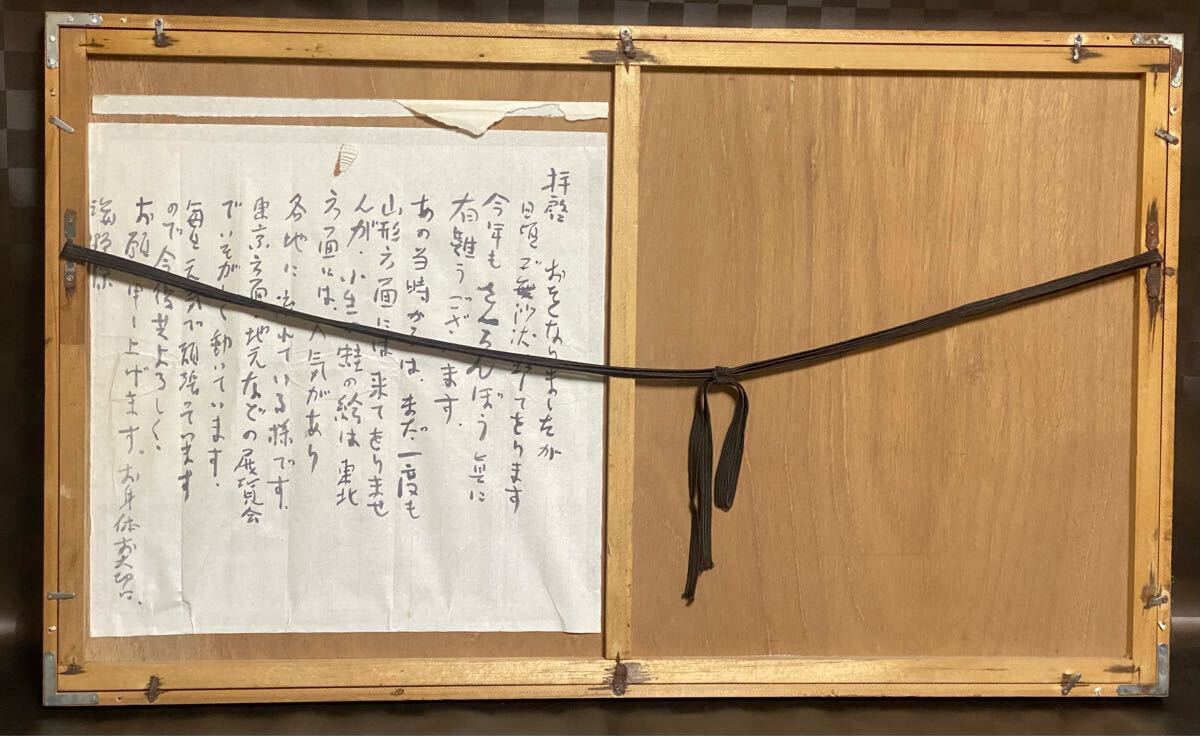 拝啓 おそくなりましたが
日頃ご無沙汰致してをります
今年もさくらんぼう
有難うございます.
あの当時からは、まだ一度も
山形方面には来てをりませ
んが、小生の鮭の絵は東北
方面には、人気があり
各地に されている様です.
東京方面、地元などの展覧会
でいそがしく動いています.
毎日元気で頑張っています
ので今後共よろしく、
お願い申し上げます。お身体お大切に、
様